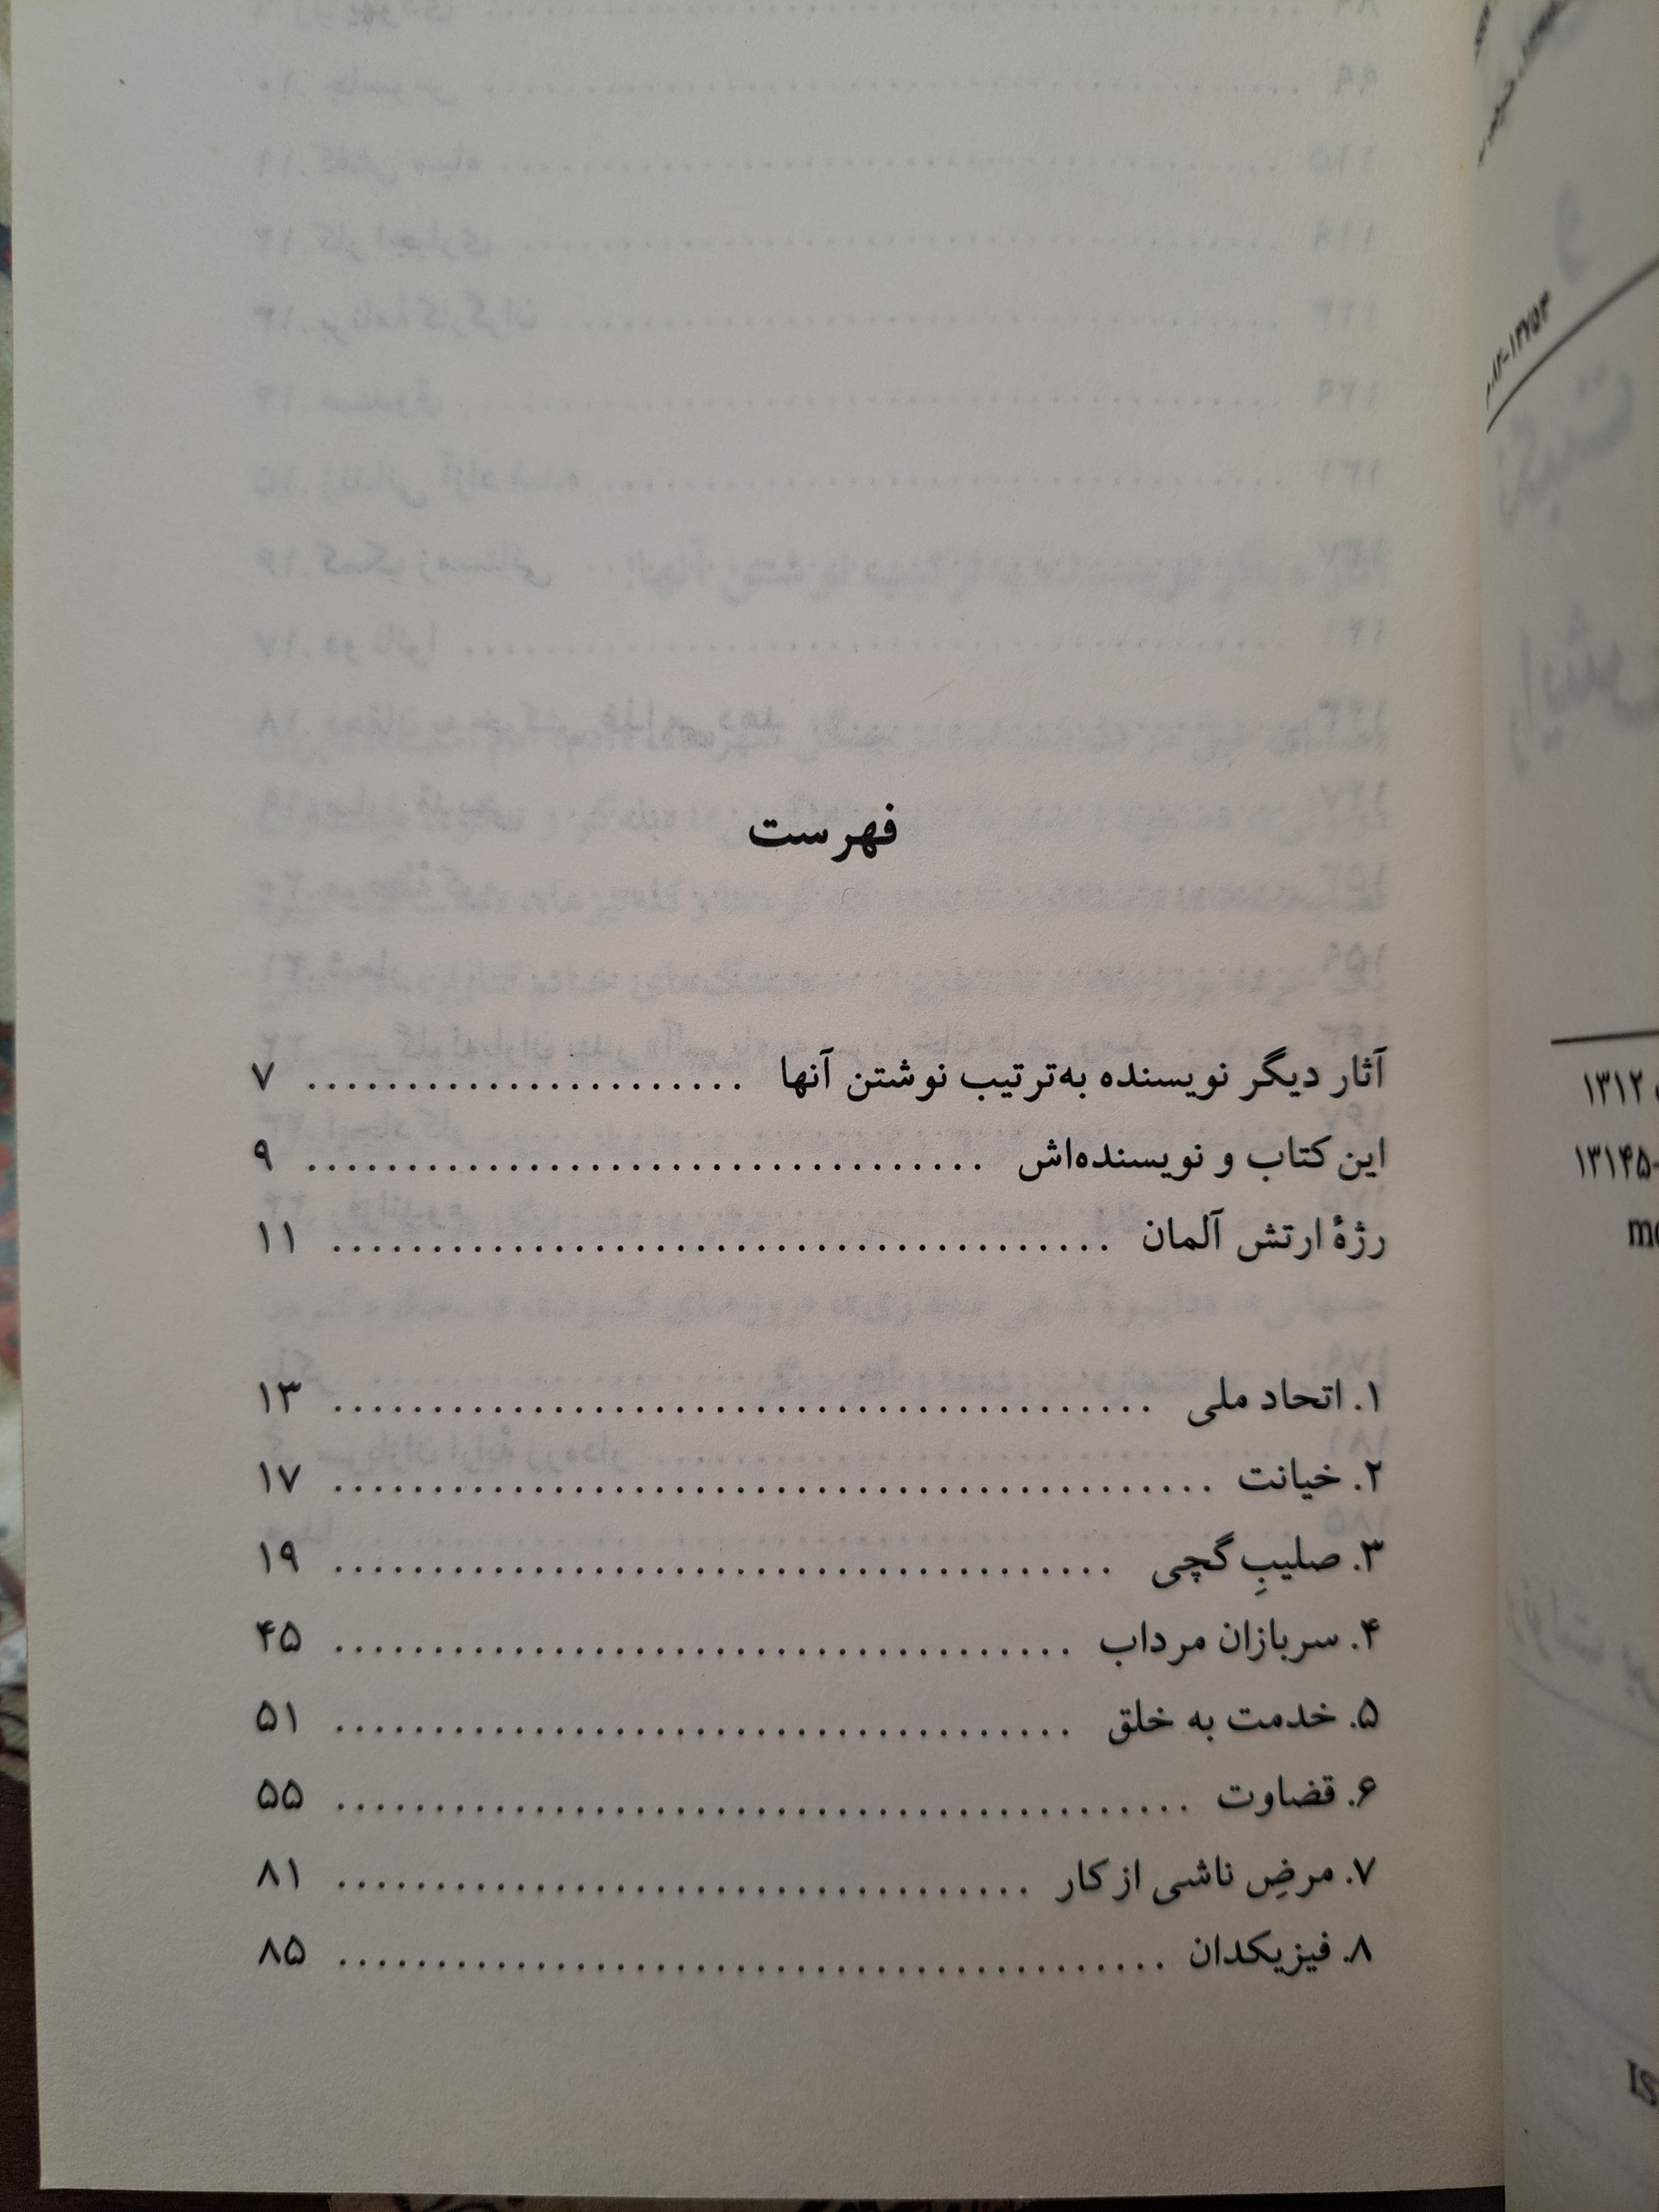 فهرست
آثار دیگر نویسنده به‌ترتیب نوشتن آنها ...................... ۷
این کتاب و نویسنده‌اش .................................. ۹
رژهٔ ارتش آلمان ....................................... ۱۱
۱. اتحاد ملی ......................................... ۱۳
۲. خیانت ............................................ ۱۷
۳. صلیبِ گچی ....................................... ۱۹
۴. سربازان مرداب ..................................... ۴۵
۵. خدمت به خلق ..................................... ۵۱
۶. قضاوت ........................................... ۵۵
۷. مرضِ ناشی از کار ................................... ۸۱
۸. فیزیکدان .......................................... ۸۵
۱۳۱۲
۱۳۱۴۵